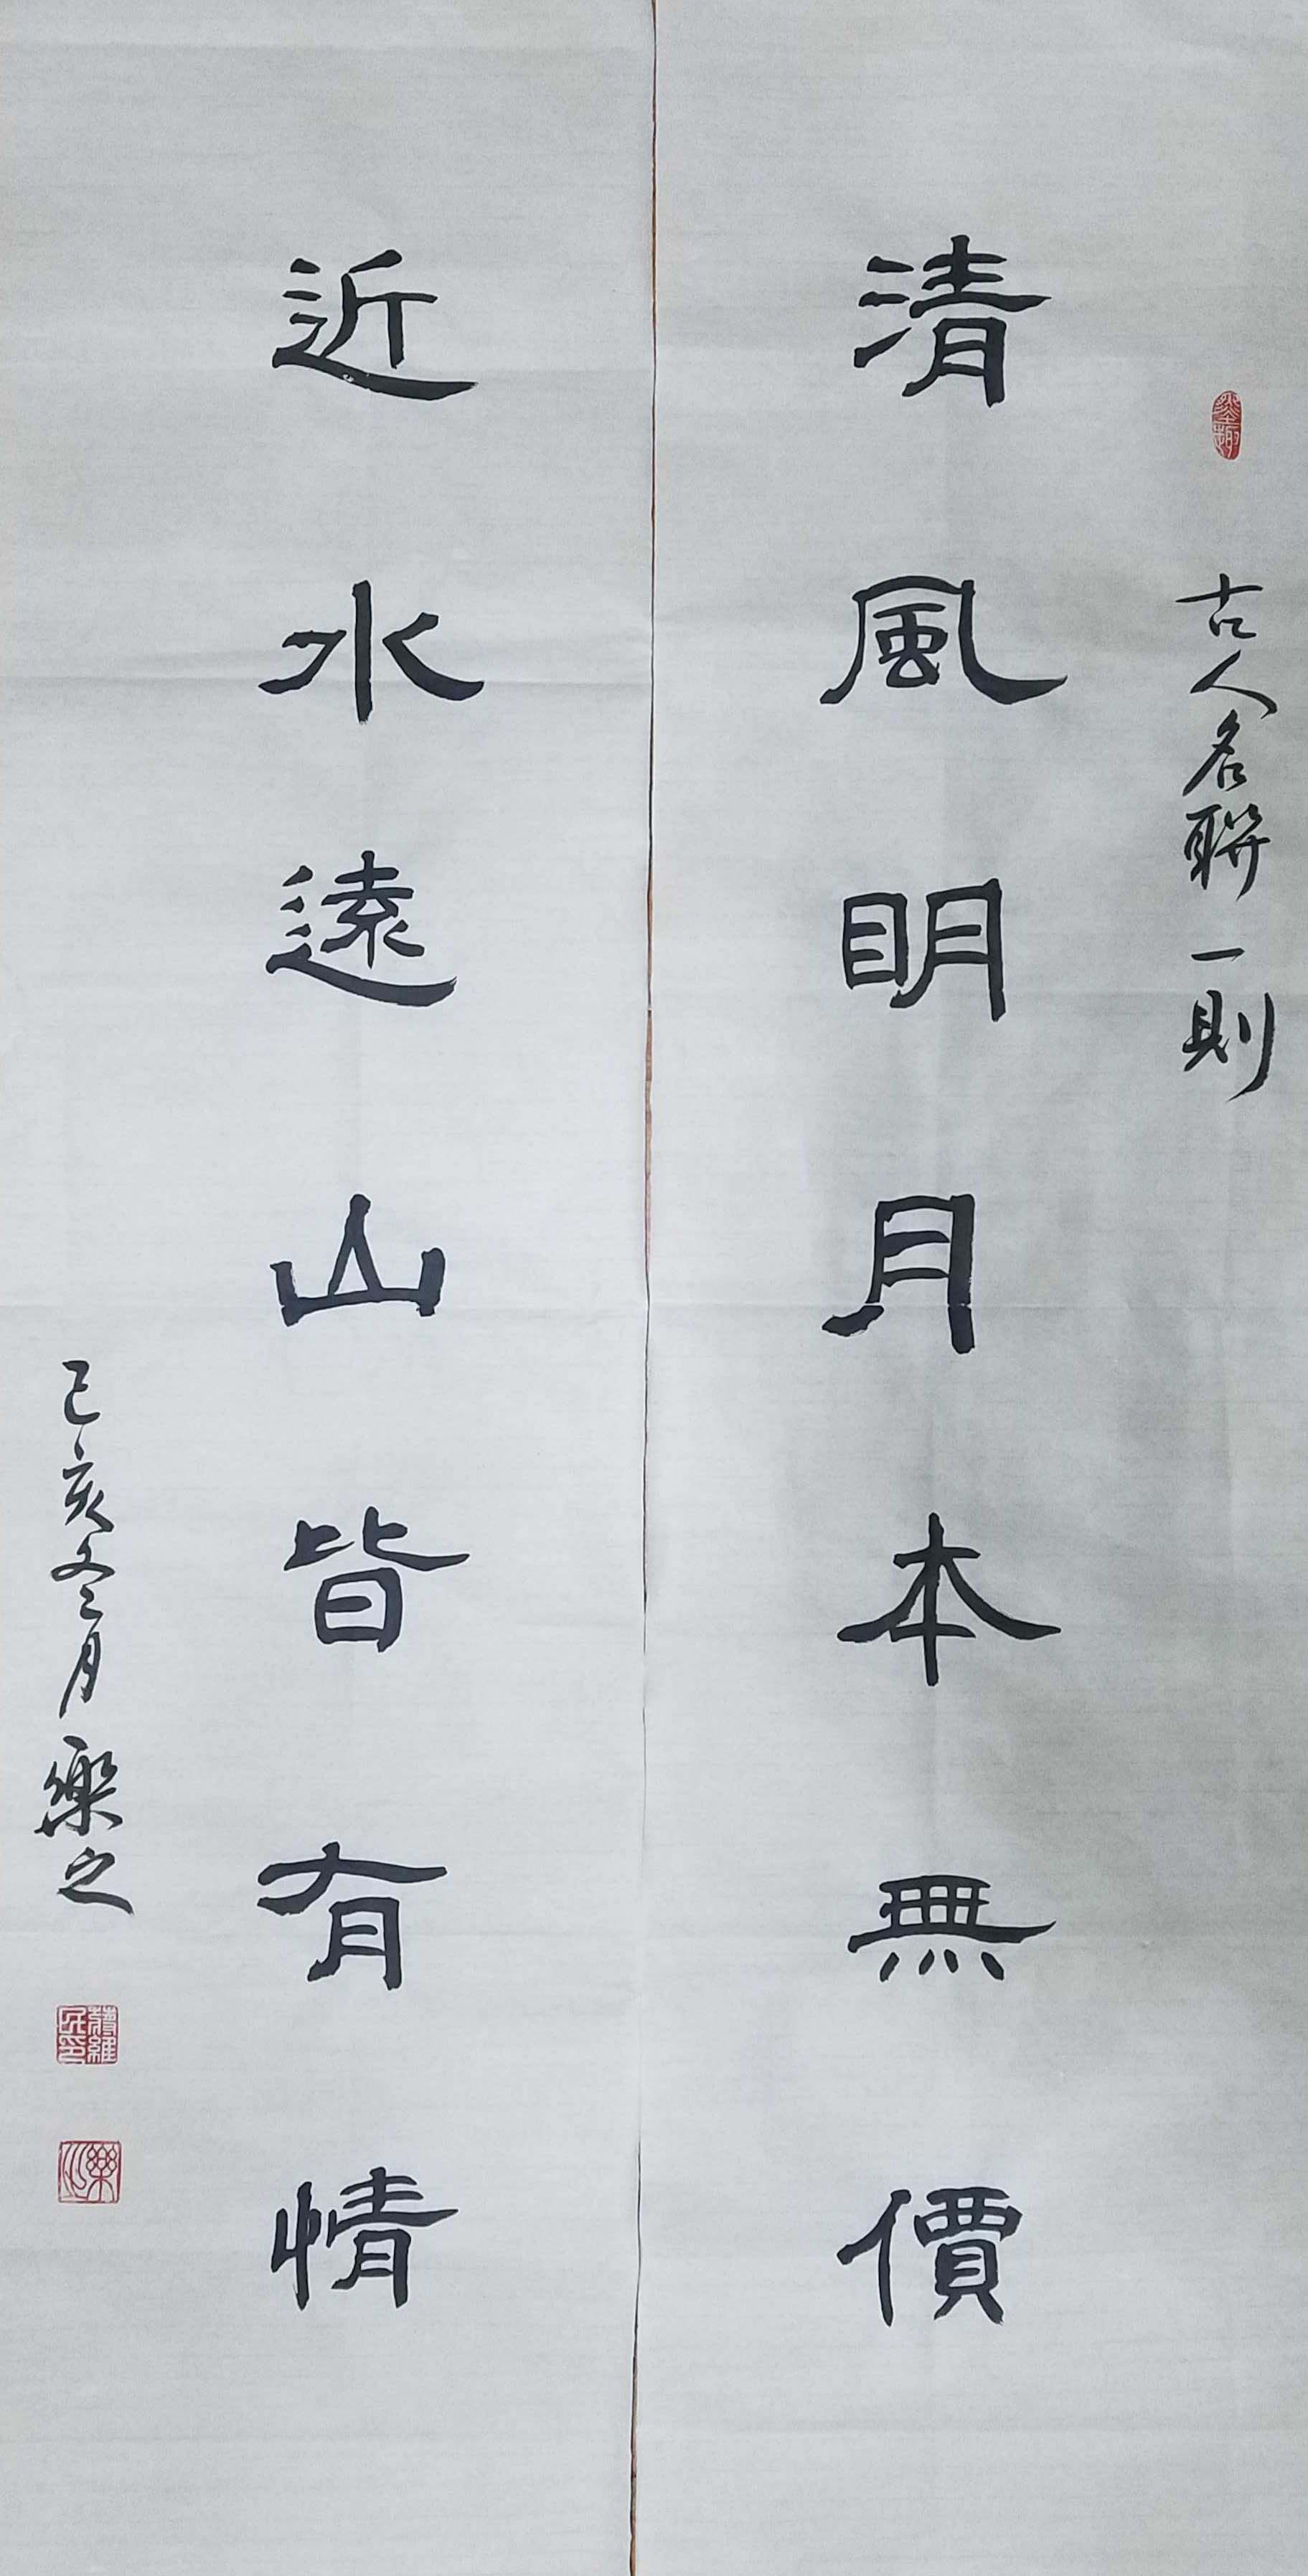 古人名聯一則
清風明月本無價
近水遠山皆有情
己亥冬月樂之
墨趣
樂之